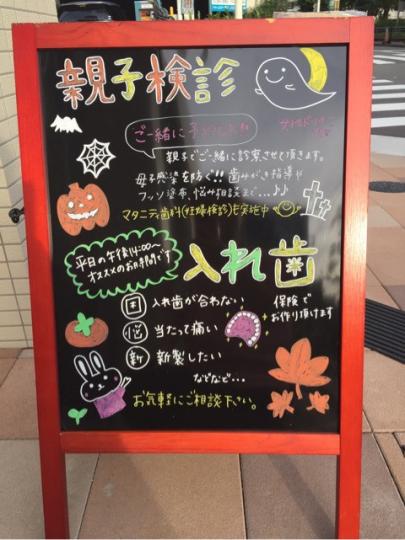 親子検診
ご一緒に
親子でご一緒に診察させて頂きます。
母子感染を防ぐ!! 歯みがき指導や
フッソ塗布、悩み相談まで…♪♪
マタニティ歯科(妊婦検診)も実施中
平日の午後14:00〜
オススメのお時間です
入れ歯
困 入れ歯が合わない
悩 当たって痛い
新 新製したい
保険で
お作り頂けます
などなど…
お気軽にご相談下さい。